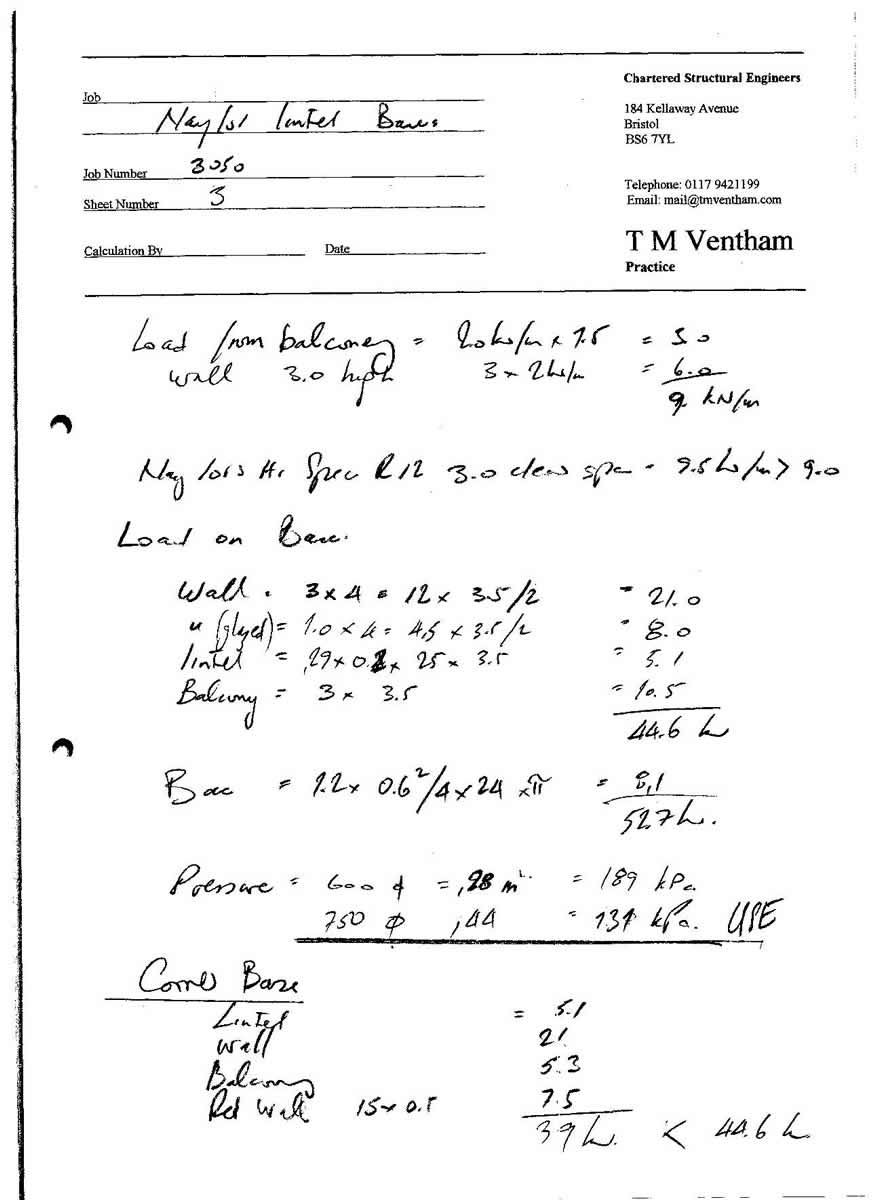 Chartered Structural Engineers
184 Kellaway Avenue
Bristol
BS6 7YL
Telephone: 0117 9421199
Email: mail@tmventham.com
T M Ventham
Practice
Job
Naylor lintel Bases
Job Number 3050
Sheet Number 3
Calculation By
Date
Load from balconey = 2.0 kN/m x 1.5 = 3.0
wall 3.0 high 3 x 2 kN/m = 6.0
9 kN/m
Naylors Hi Spec R12 3.0 clear span = 9.5 kN/m > 9.0
Load on Base.
Wall = 3 x 4 = 12 x 3.5/2 = 21.0
" (glzed) = 1.0 x 4 = 4.5 x 3.5/2 = 8.0
lintel = .29 x 0.2 x 25 x 3.5 = 5.1
Balcony = 3 x 3.5 = 10.5
44.6 kN
Base = 1.2 x 0.6²/4 x 24 x π = 8.1
52.7 kN.
Pressure = 600 ϕ = .28 m² = 189 kPa.
750 ϕ .44 = 131 kPa. USE
Corner Base
Lintel = 5.1
wall 21
Balcony 5.3
Ret Wall 15 x 0.5 7.5
39 kN. < 44.6 kN